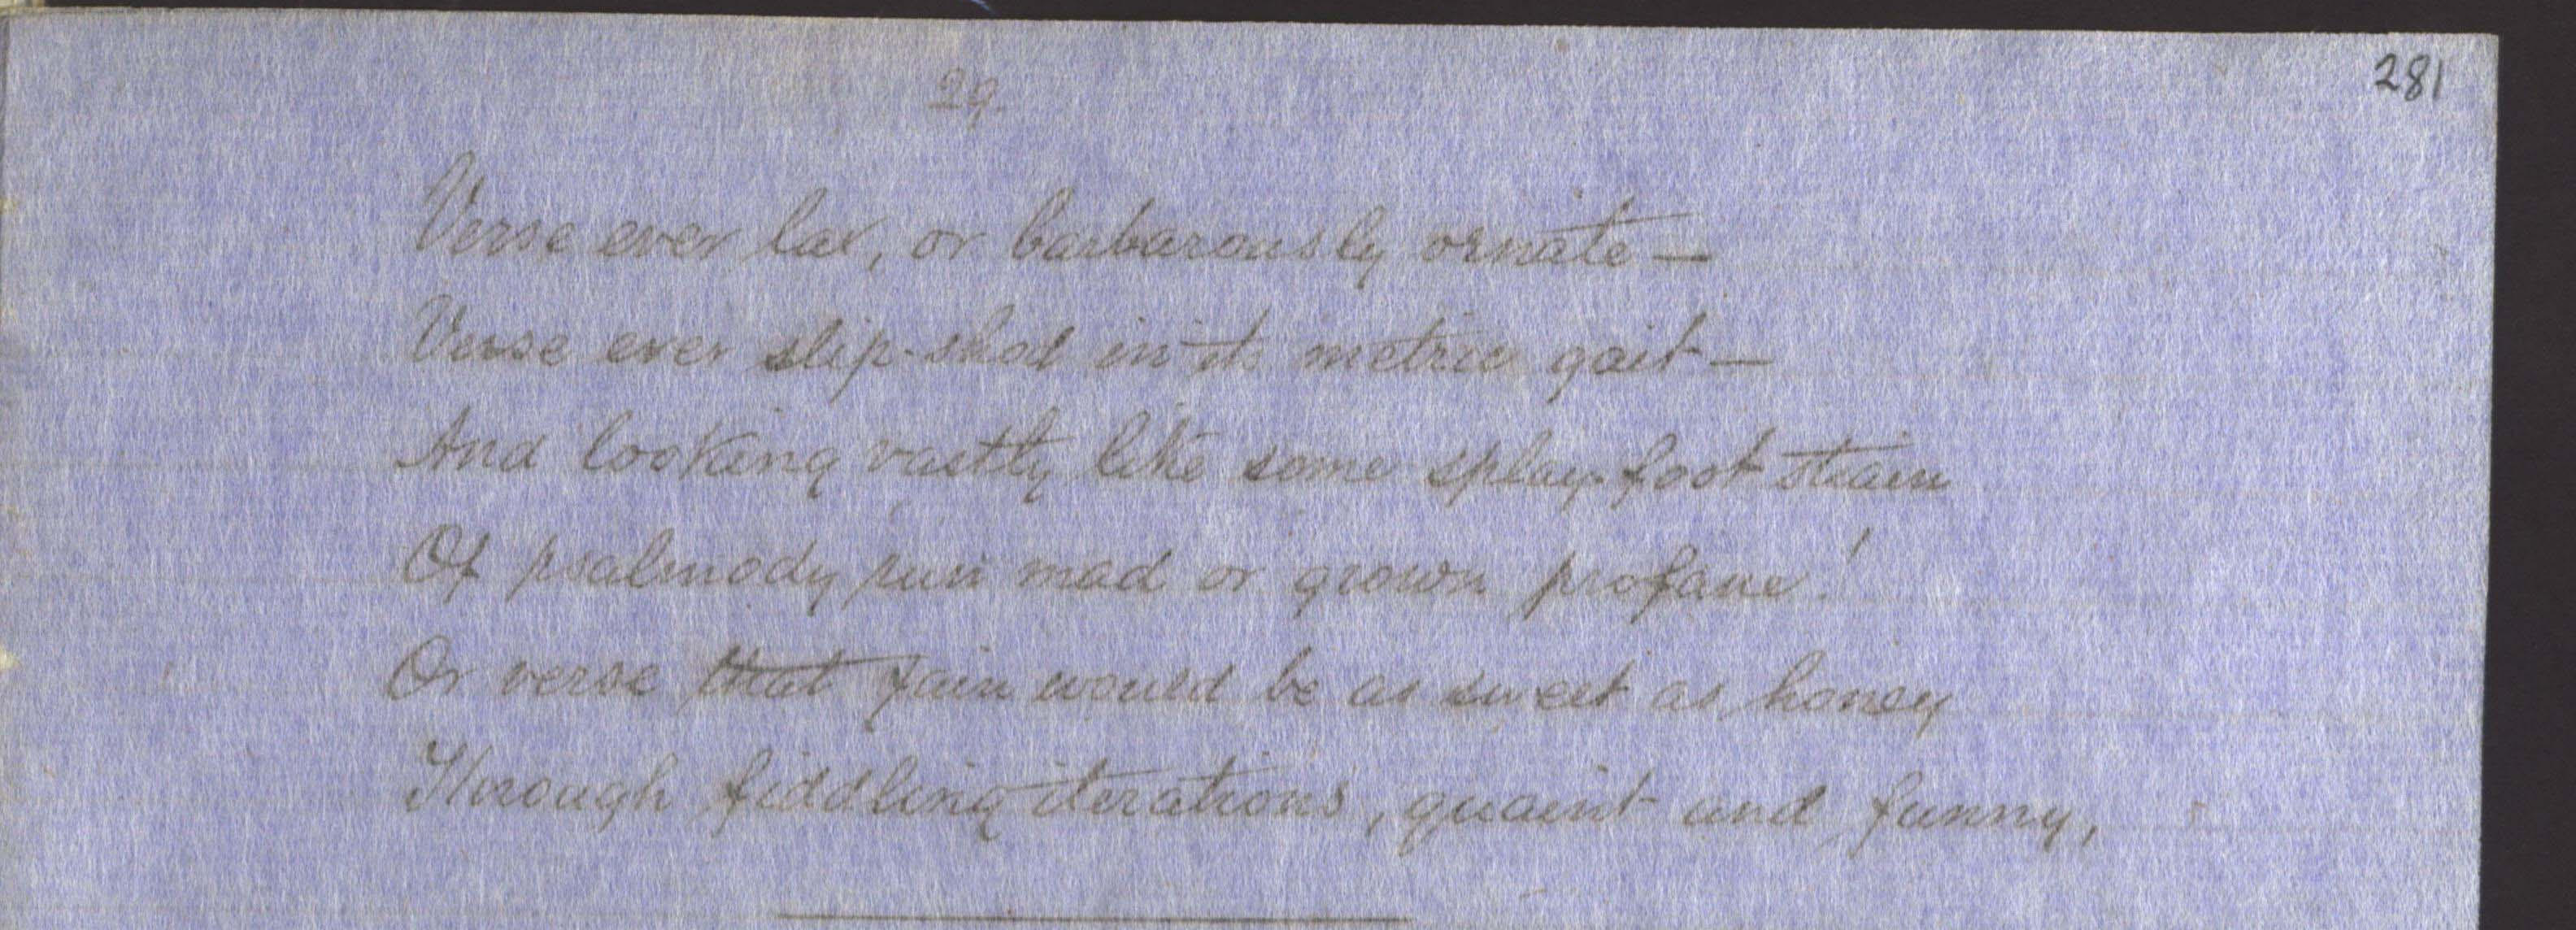 281
29
Verse ever lax, or barbarously ornate —
Verse ever slip-shod in its metric gait —
And looking vastly like some splay-foot strain
Of psalmody run mad or grown profane!
Or verse that fain would be as sweet as honey
Through fiddling iterations, quaint and funny,